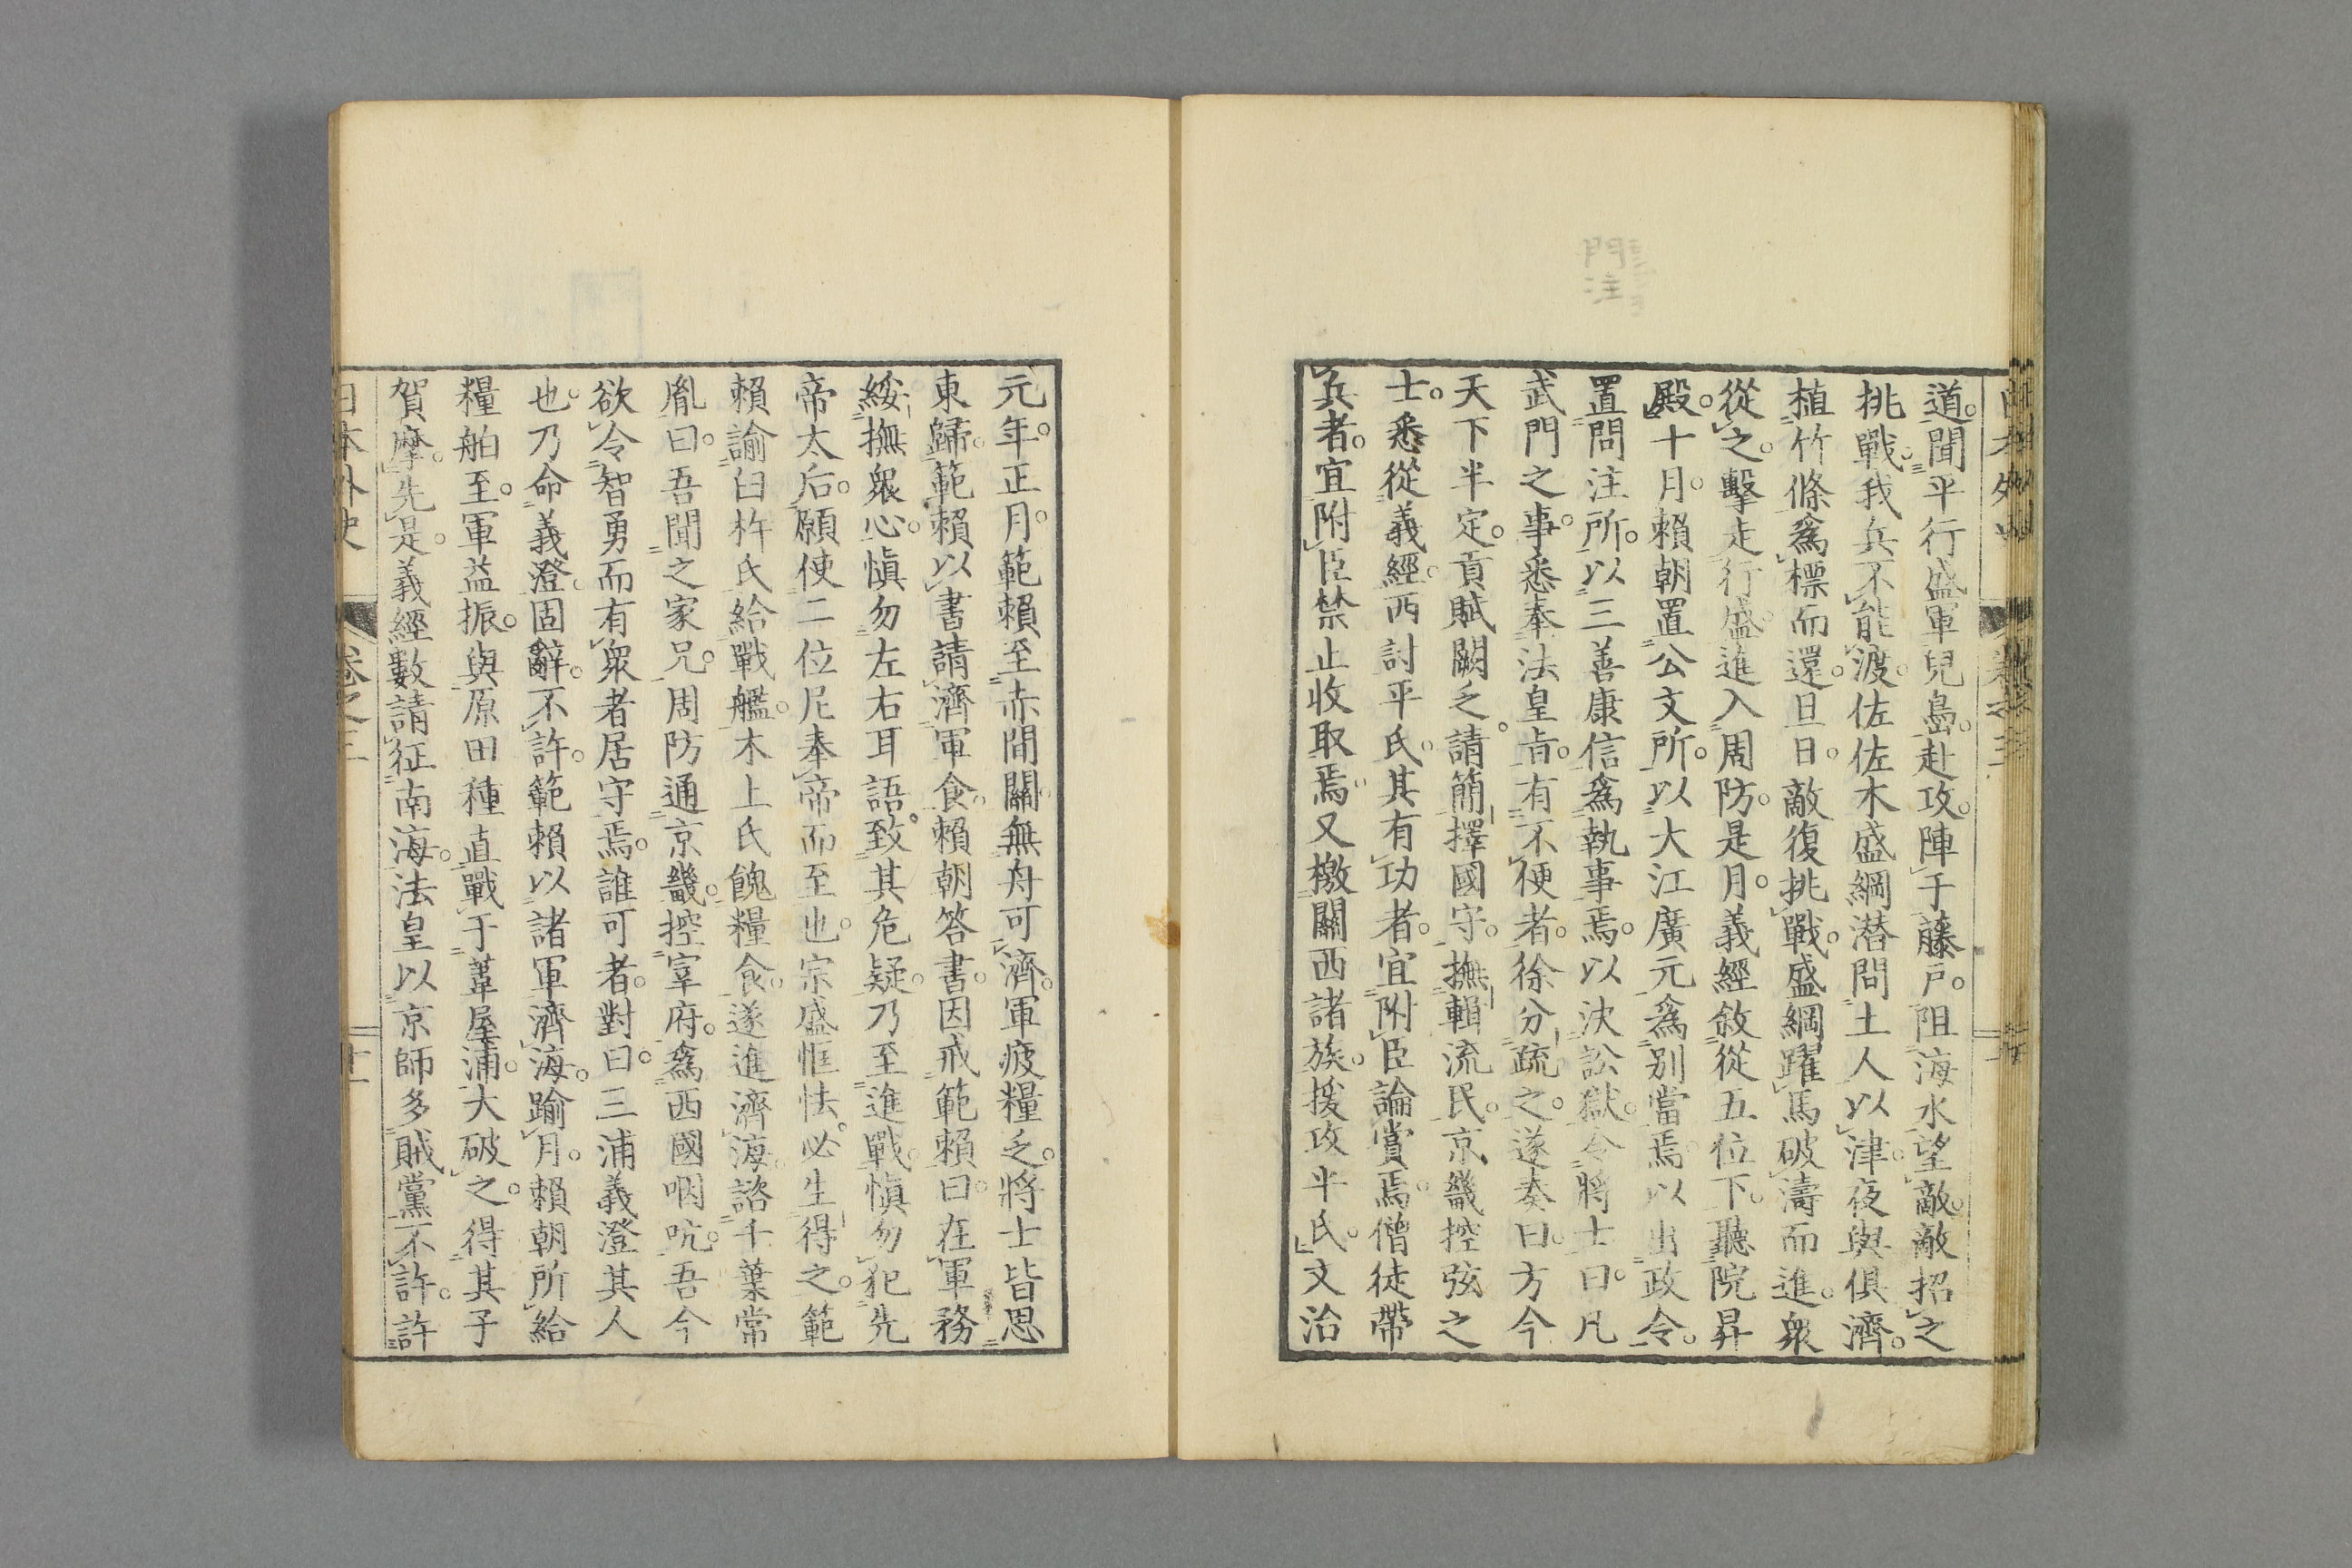 道。聞平行盛軍兒島。赴攻。陣于藤戸。阻海水望敵。敵招之
挑戰。我兵不能渡。佐佐木盛綱潜問土人以津。夜與俱濟。
植竹條爲標而還。旦日。敵復挑戰。盛綱躍馬破濤而進。衆
從之。擊走行盛。進入周防。是月。義經敘從五位下。聽院昇
殿。十月。賴朝置公文所。以大江廣元爲別當焉。以出政令。
置問注所。以三善康信爲執事焉。以決訟獄。令將士曰。凡
武門之事。悉奉法皇旨。有不便者。徐分疏之。遂奏曰。方今
天下半定。貢賦闕乏。請簡擇國守。撫輯流民。京畿控弦之
士。悉從義經。西討平氏。其有功者。宜附臣論賞焉。僧徒帶
兵者。宜附臣禁止收取焉。又檄關西諸族。援攻平氏。文治
元年。正月。範賴至赤間關。無舟可濟。軍疲糧乏。將士皆思
東歸。範賴以書請濟軍食。賴朝答書。因戒範賴曰。在軍務
綏撫衆心。愼勿左右耳語。致其危疑。乃至進戰。愼勿犯先
帝太后。願使二位尼奉帝而至也。宗盛恇怯。必生得之。範
賴諭臼杵氏給戰艦。木上氏餽糧食。遂進濟海。諮千葉常
胤曰。吾聞之家兄。周防通京畿。控宰府。爲西國咽吭。吾今
欲令智勇而有衆者居守焉。誰可者。對曰。三浦義澄其人
也。乃命義澄。固辭。不許。範賴以諸軍濟海。踰月。賴朝所給
糧舶至。軍益振。與原田種直戰于葦屋浦。大破之。得其子
賀摩。先是。義經數請征南海。法皇以京師多賊黨不許。許
日本外史 卷之三 十一